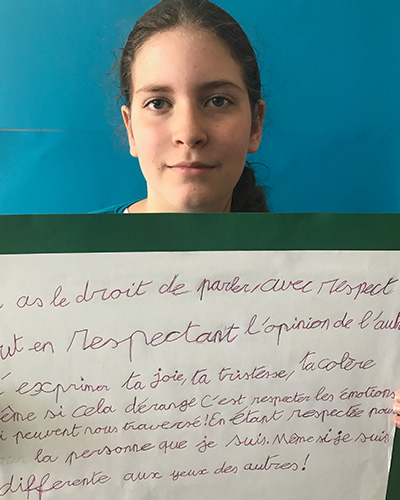 as le droit de parler, avec respect
out en respectant l'opinion de l'aut
exprimer ta joie, ta tristesse, ta colère
ême si cela dérange c'est respecter les émotions
i peuvent nous traversé! En étant respectée pour
la personne que je suis. Même si je suis
differente aux yeux des autres!